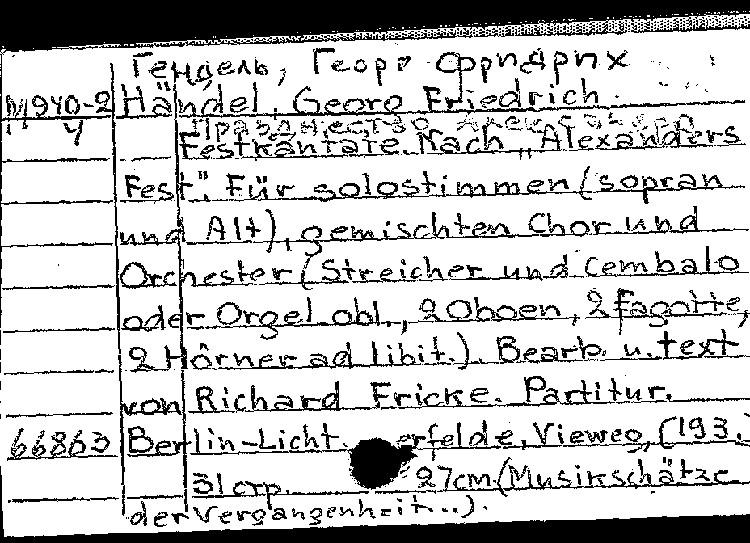 Гендель, Георг Фридрих
М940-2 Händel, Georg Friedrich.
4 Празднество Александра
Festkantate. Nach „Alexanders
Fest". Für solostimmen (sopran
und Alt), gemischten Chor und
Orchester (Streicher und Cembalo
oder Orgel obl., 2 Oboen, 2 fagotte,
2 Hörner ad libit.). Bearb. u. text
von Richard Fricke. Partitur.
66863 Berlin-Licht erfelde, Vieweg, [193.
31 стр. 27cm. (Musikschätze
der Vergangenheit...).